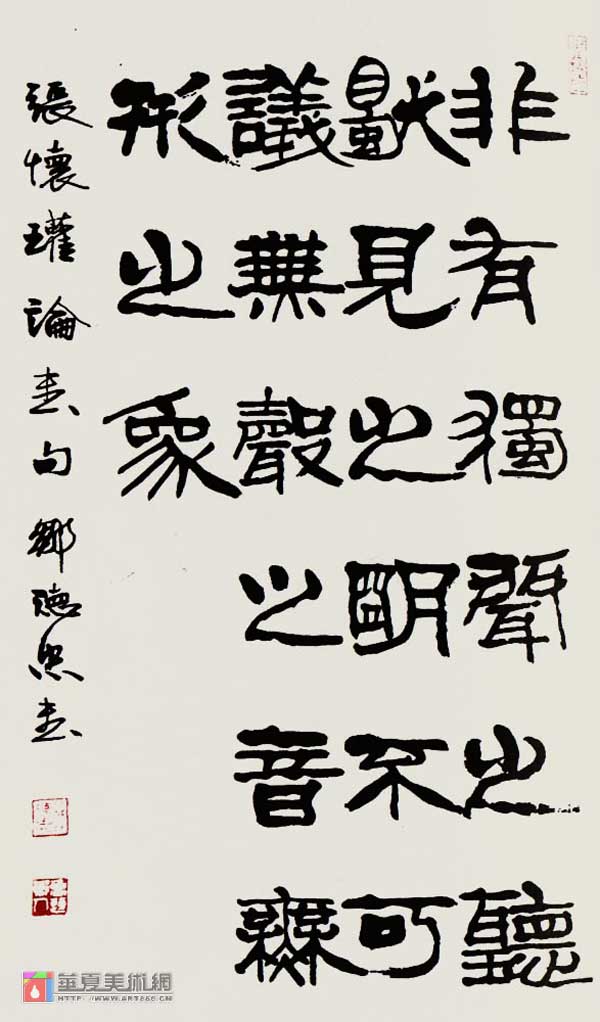 非有獨聞之聽
獨見之明不可
議無聲之音無
形之象
張懷瓘論書句鄒德忠書
華夏美術網